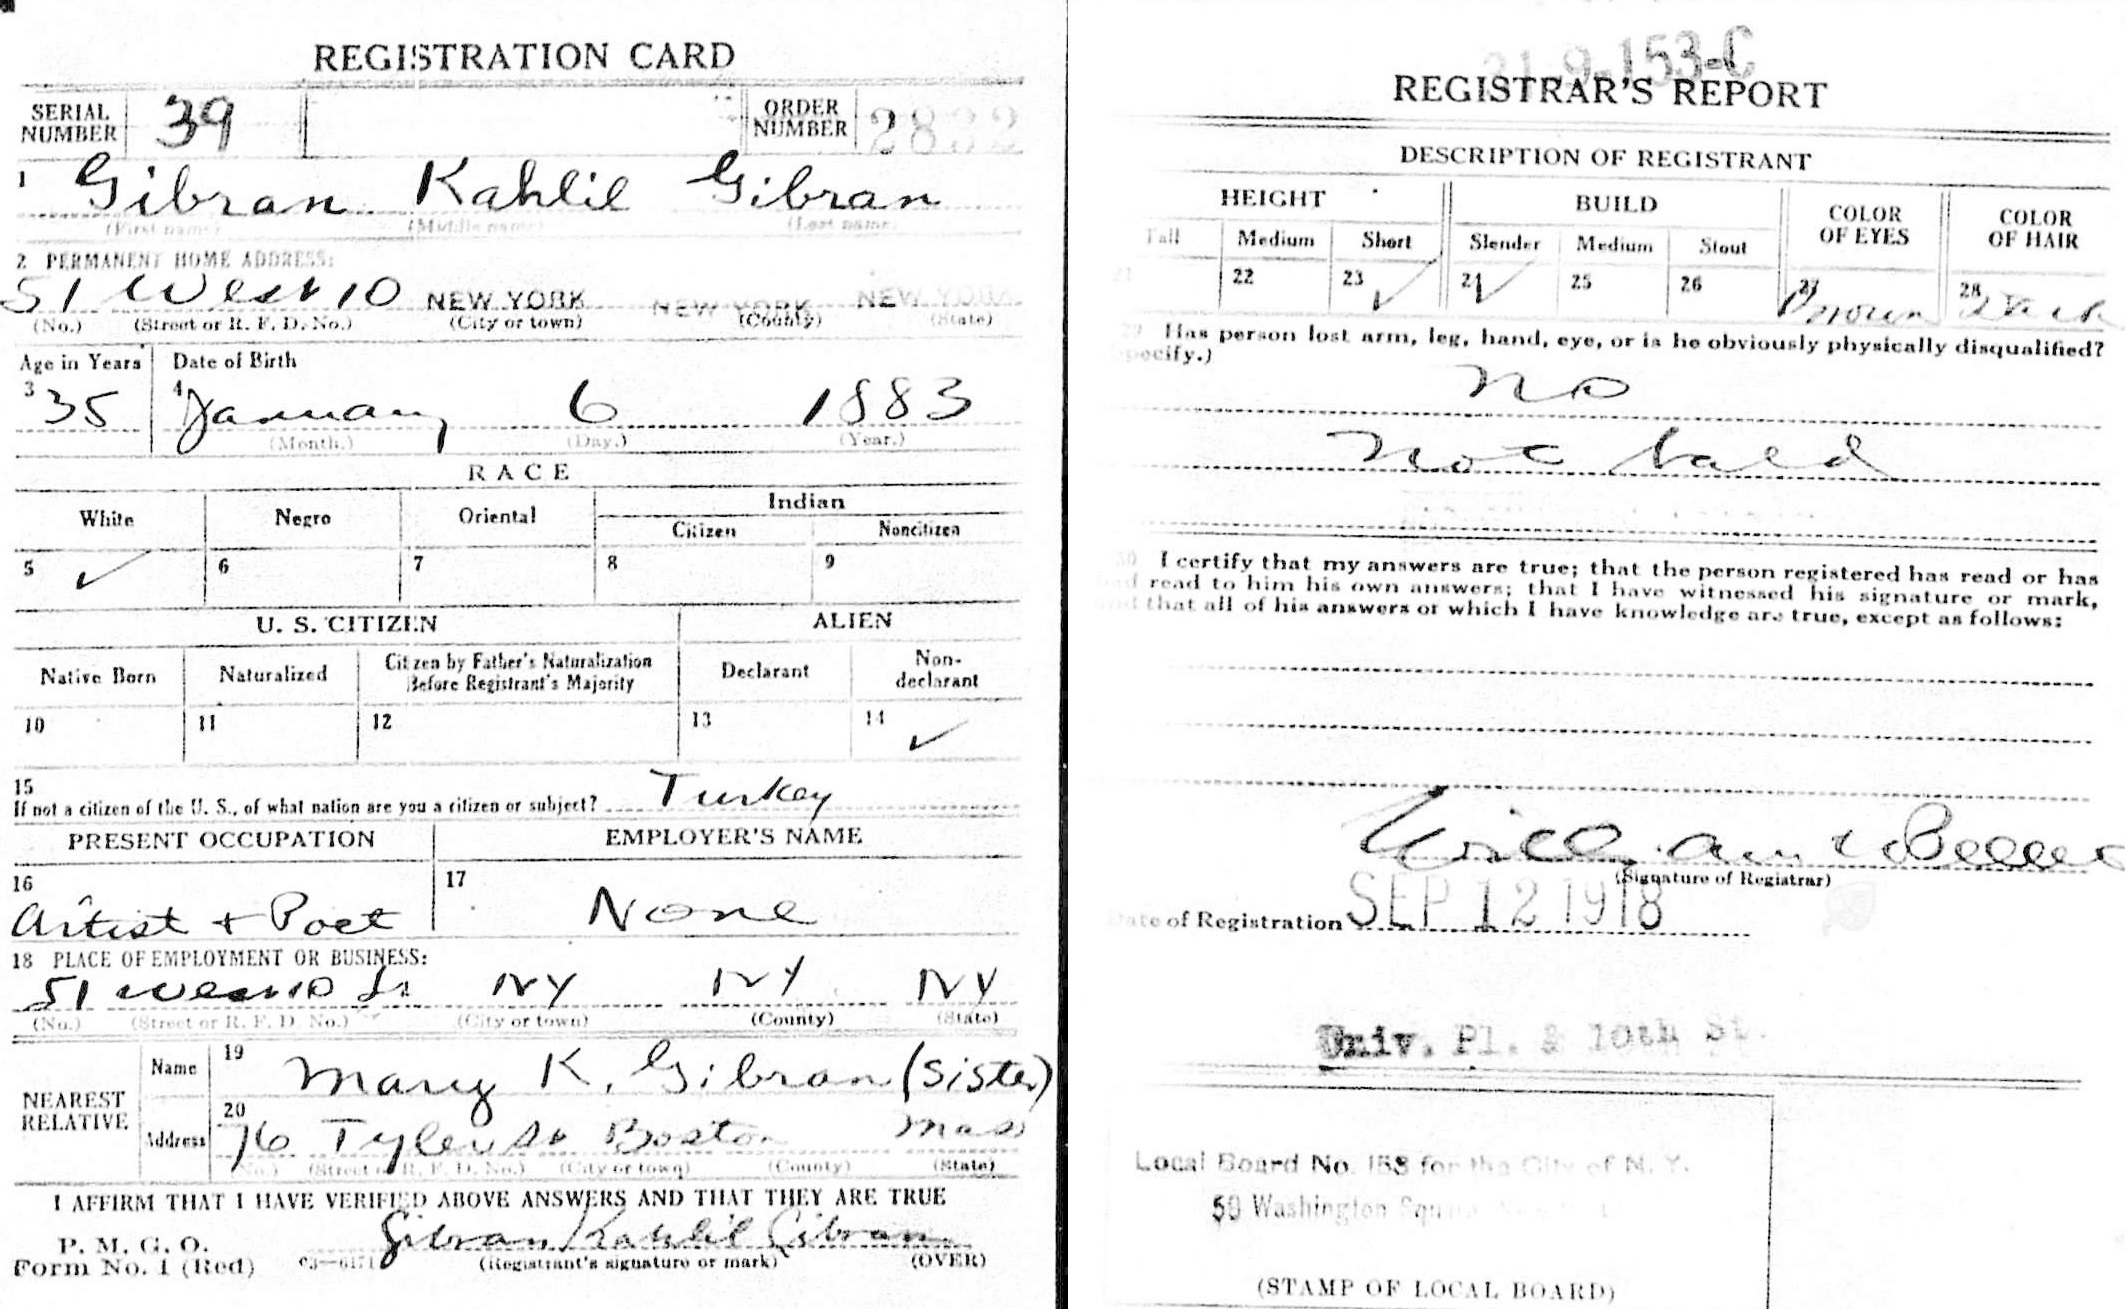 REGISTRATION CARD
SERIAL NUMBER 39 ORDER NUMBER 2832
1 Gibran Kahlil Gibran
(First name) (Middle name) (Last name)
2 PERMANENT HOME ADDRESS:
51 West 10 NEW YORK NEW YORK NEW YORK
(No.) (Street or R. F. D. No.) (City or town) (County) (State)
Age in Years Date of Birth
3 35 4 January 6 1883
(Month.) (Day.) (Year.)
RACE
White Negro Oriental Indian
Citizen Noncitizen
5 ✓ 6 7 8 9
U. S. CITIZEN ALIEN
Native Born Naturalized Citizen by Father's Naturalization Before Registrant's Majority Declarant Non-declarant
10 11 12 13 14 ✓
15
If not a citizen of the U. S., of what nation are you a citizen or subject? Turkey
PRESENT OCCUPATION EMPLOYER'S NAME
16 Artist + Poet 17 None
18 PLACE OF EMPLOYMENT OR BUSINESS:
51 West 10 St NY NY NY
(No.) (Street or R. F. D. No.) (City or town) (County) (State)
NEAREST RELATIVE
Name 19 Mary K. Gibran (Sister)
Address 20 76 Tyler St Boston Mass
(No.) (Street or R. F. D. No.) (City or town) (County) (State)
I AFFIRM THAT I HAVE VERIFIED ABOVE ANSWERS AND THAT THEY ARE TRUE
P. M. G. O.
Form No. 1 (Red) 03—6171 Gibran Kahlil Gibran
(Registrant's signature or mark) (OVER)
31-9-153-C
REGISTRAR'S REPORT
DESCRIPTION OF REGISTRANT
HEIGHT BUILD COLOR OF EYES COLOR OF HAIR
Tall Medium Short Slender Medium Stout
21 22 23 ✓ 24 ✓ 25 26 27 Brown 28
29 Has person lost arm, leg, hand, eye, or is he obviously physically disqualified?
(Specify.)
no
not bald
30 I certify that my answers are true; that the person registered has read or has
had read to him his own answers; that I have witnessed his signature or mark,
and that all of his answers of which I have knowledge are true, except as follows:
William
(Signature of Registrar)
Date of Registration SEP 12 1918
Univ. Pl. & 10th St.
Local Board No. 153 for the City of N. Y.
50 Washington Square
(STAMP OF LOCAL BOARD)